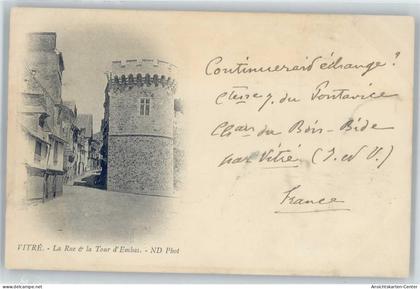 Continuerais d'échange ?
Ctesse Y. du Pontavice
Chau du Bois-Bide
par Vitré (I. et V.)
France
VITRÉ. - La Rue & la Tour d'Embas. - ND Phot
www.ansichtskarten-center.de